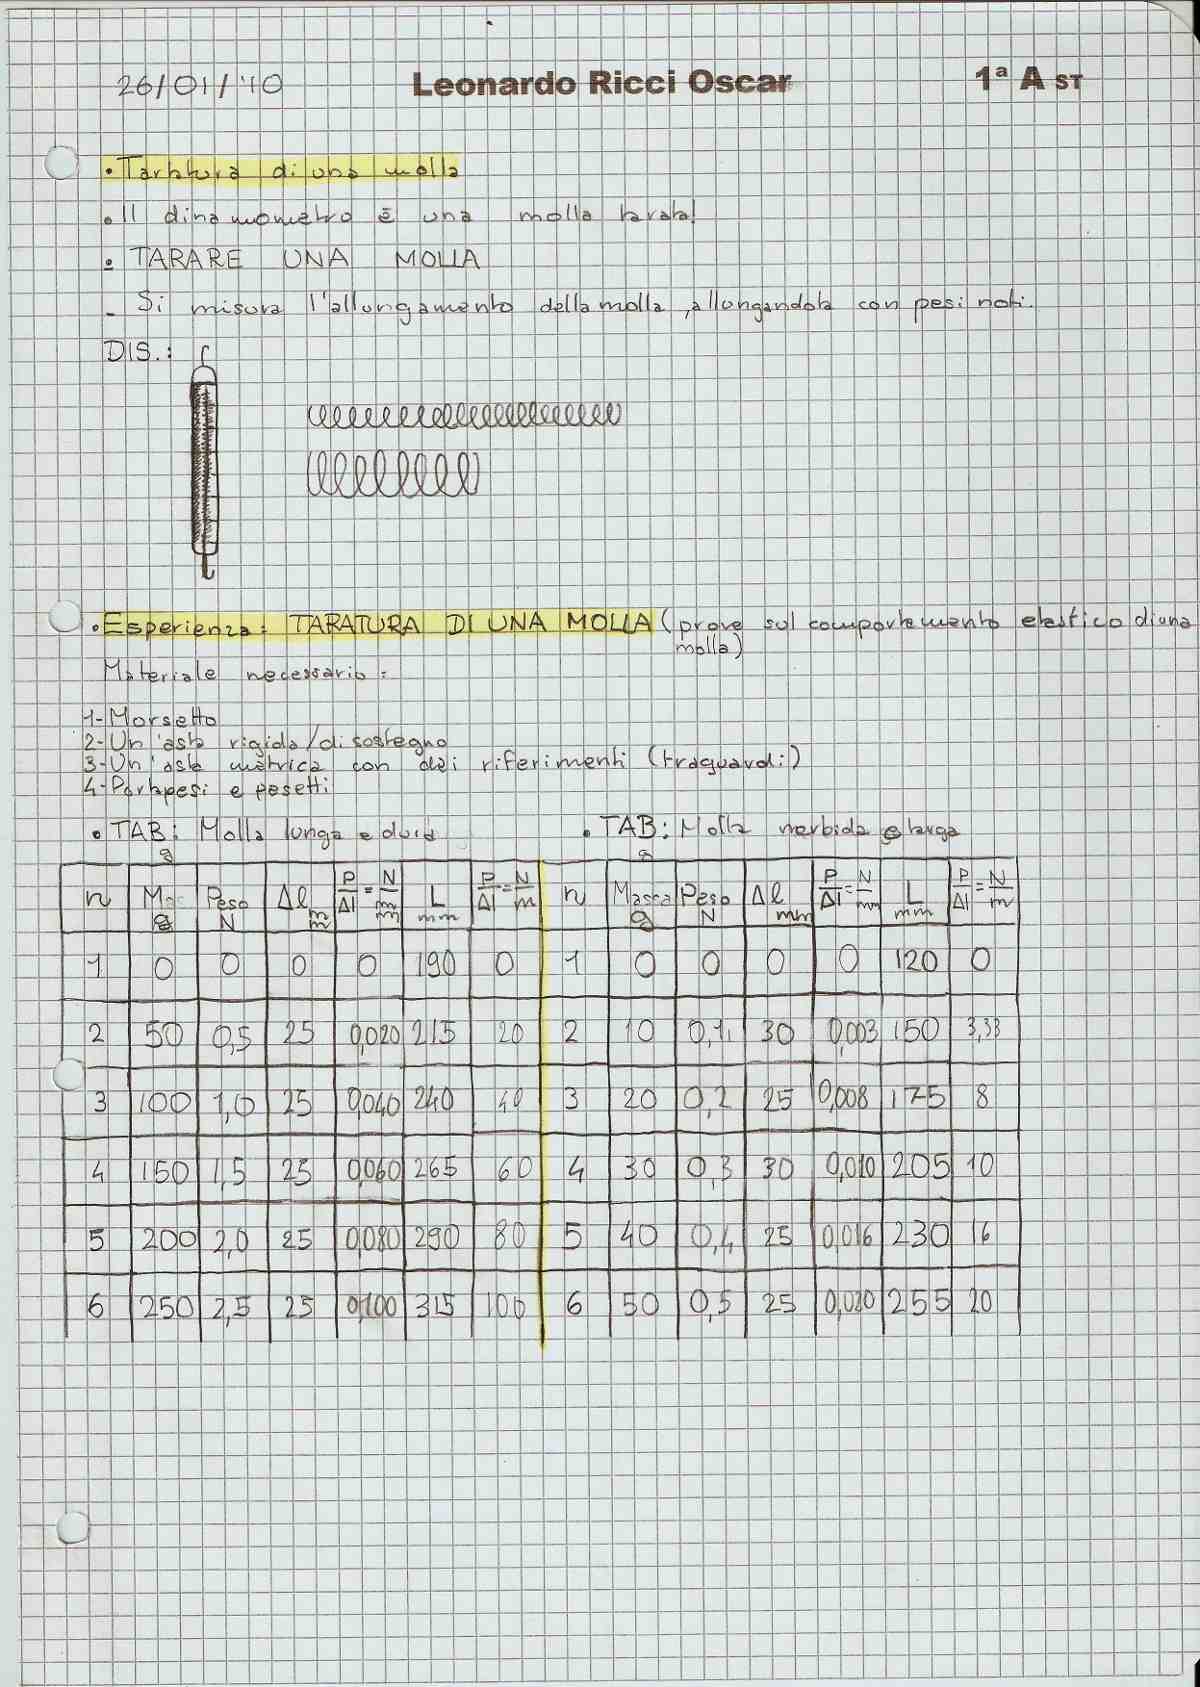 26/01/'10 Leonardo Ricci Oscar 1ª A ST
• Taratura di una molla
• Il dinamometro è una molla tarata!
• TARARE UNA MOLLA
- Si misura l'allungamento della molla, allungandola con pesi noti.
DIS.:
• Esperienza: TARATURA DI UNA MOLLA (prove sul comportamento elastico di una
molla)
Materiale necessario:
1-Morsetto
2-Un'asta rigida/di sostegno
3-Un'asta metrica con dei riferimenti (traguardi)
4-Portapesi e pesetti
• TAB: Molla lunga e dura • TAB: Molla morbida e larga
n g Peso N Δl mm P/Δl = N/mm L mm P/Δl = N/m n Massa g Peso N Δl mm P/Δl = N/mm L mm P/Δl = N/m
1 0 0 0 0 190 0 1 0 0 0 0 120 0
2 50 0,5 25 0,020 215 20 2 10 0,1 30 0,003 150 3,33
3 100 1,0 25 0,040 240 40 3 20 0,2 25 0,008 175 8
4 150 1,5 25 0,060 265 60 4 30 0,3 30 0,010 205 10
5 200 2,0 25 0,080 290 80 5 40 0,4 25 0,016 230 16
6 250 2,5 25 0,100 315 100 6 50 0,5 25 0,020 255 20